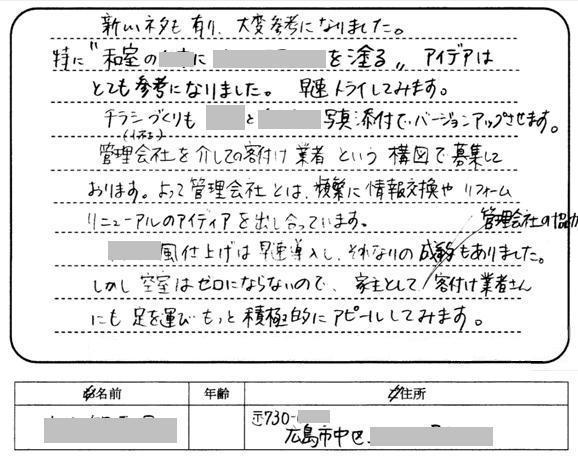 新しいネタも有り、大変参考になりました。
特に〝和室の に を塗る〟アイデアは
とても参考になりました。早速トライしてみます。
チラシづくりも と 写真添付でバージョンアップさせます。
管理会社を介しての客付け業者という構図で募集して
おります。よって管理会社とは、頻繁に情報交換やリフォーム
リニューアルのアイディアを出し合っています。
管理会社の協力
風仕上げは早速導入し、それなりの成約もありました。
しかし空室はゼロにならないので、家主として客付け業者さん
にも足を運びもっと積極的にアピールしてみます。
お名前 年齢 ご住所
〒730-
広島市中区